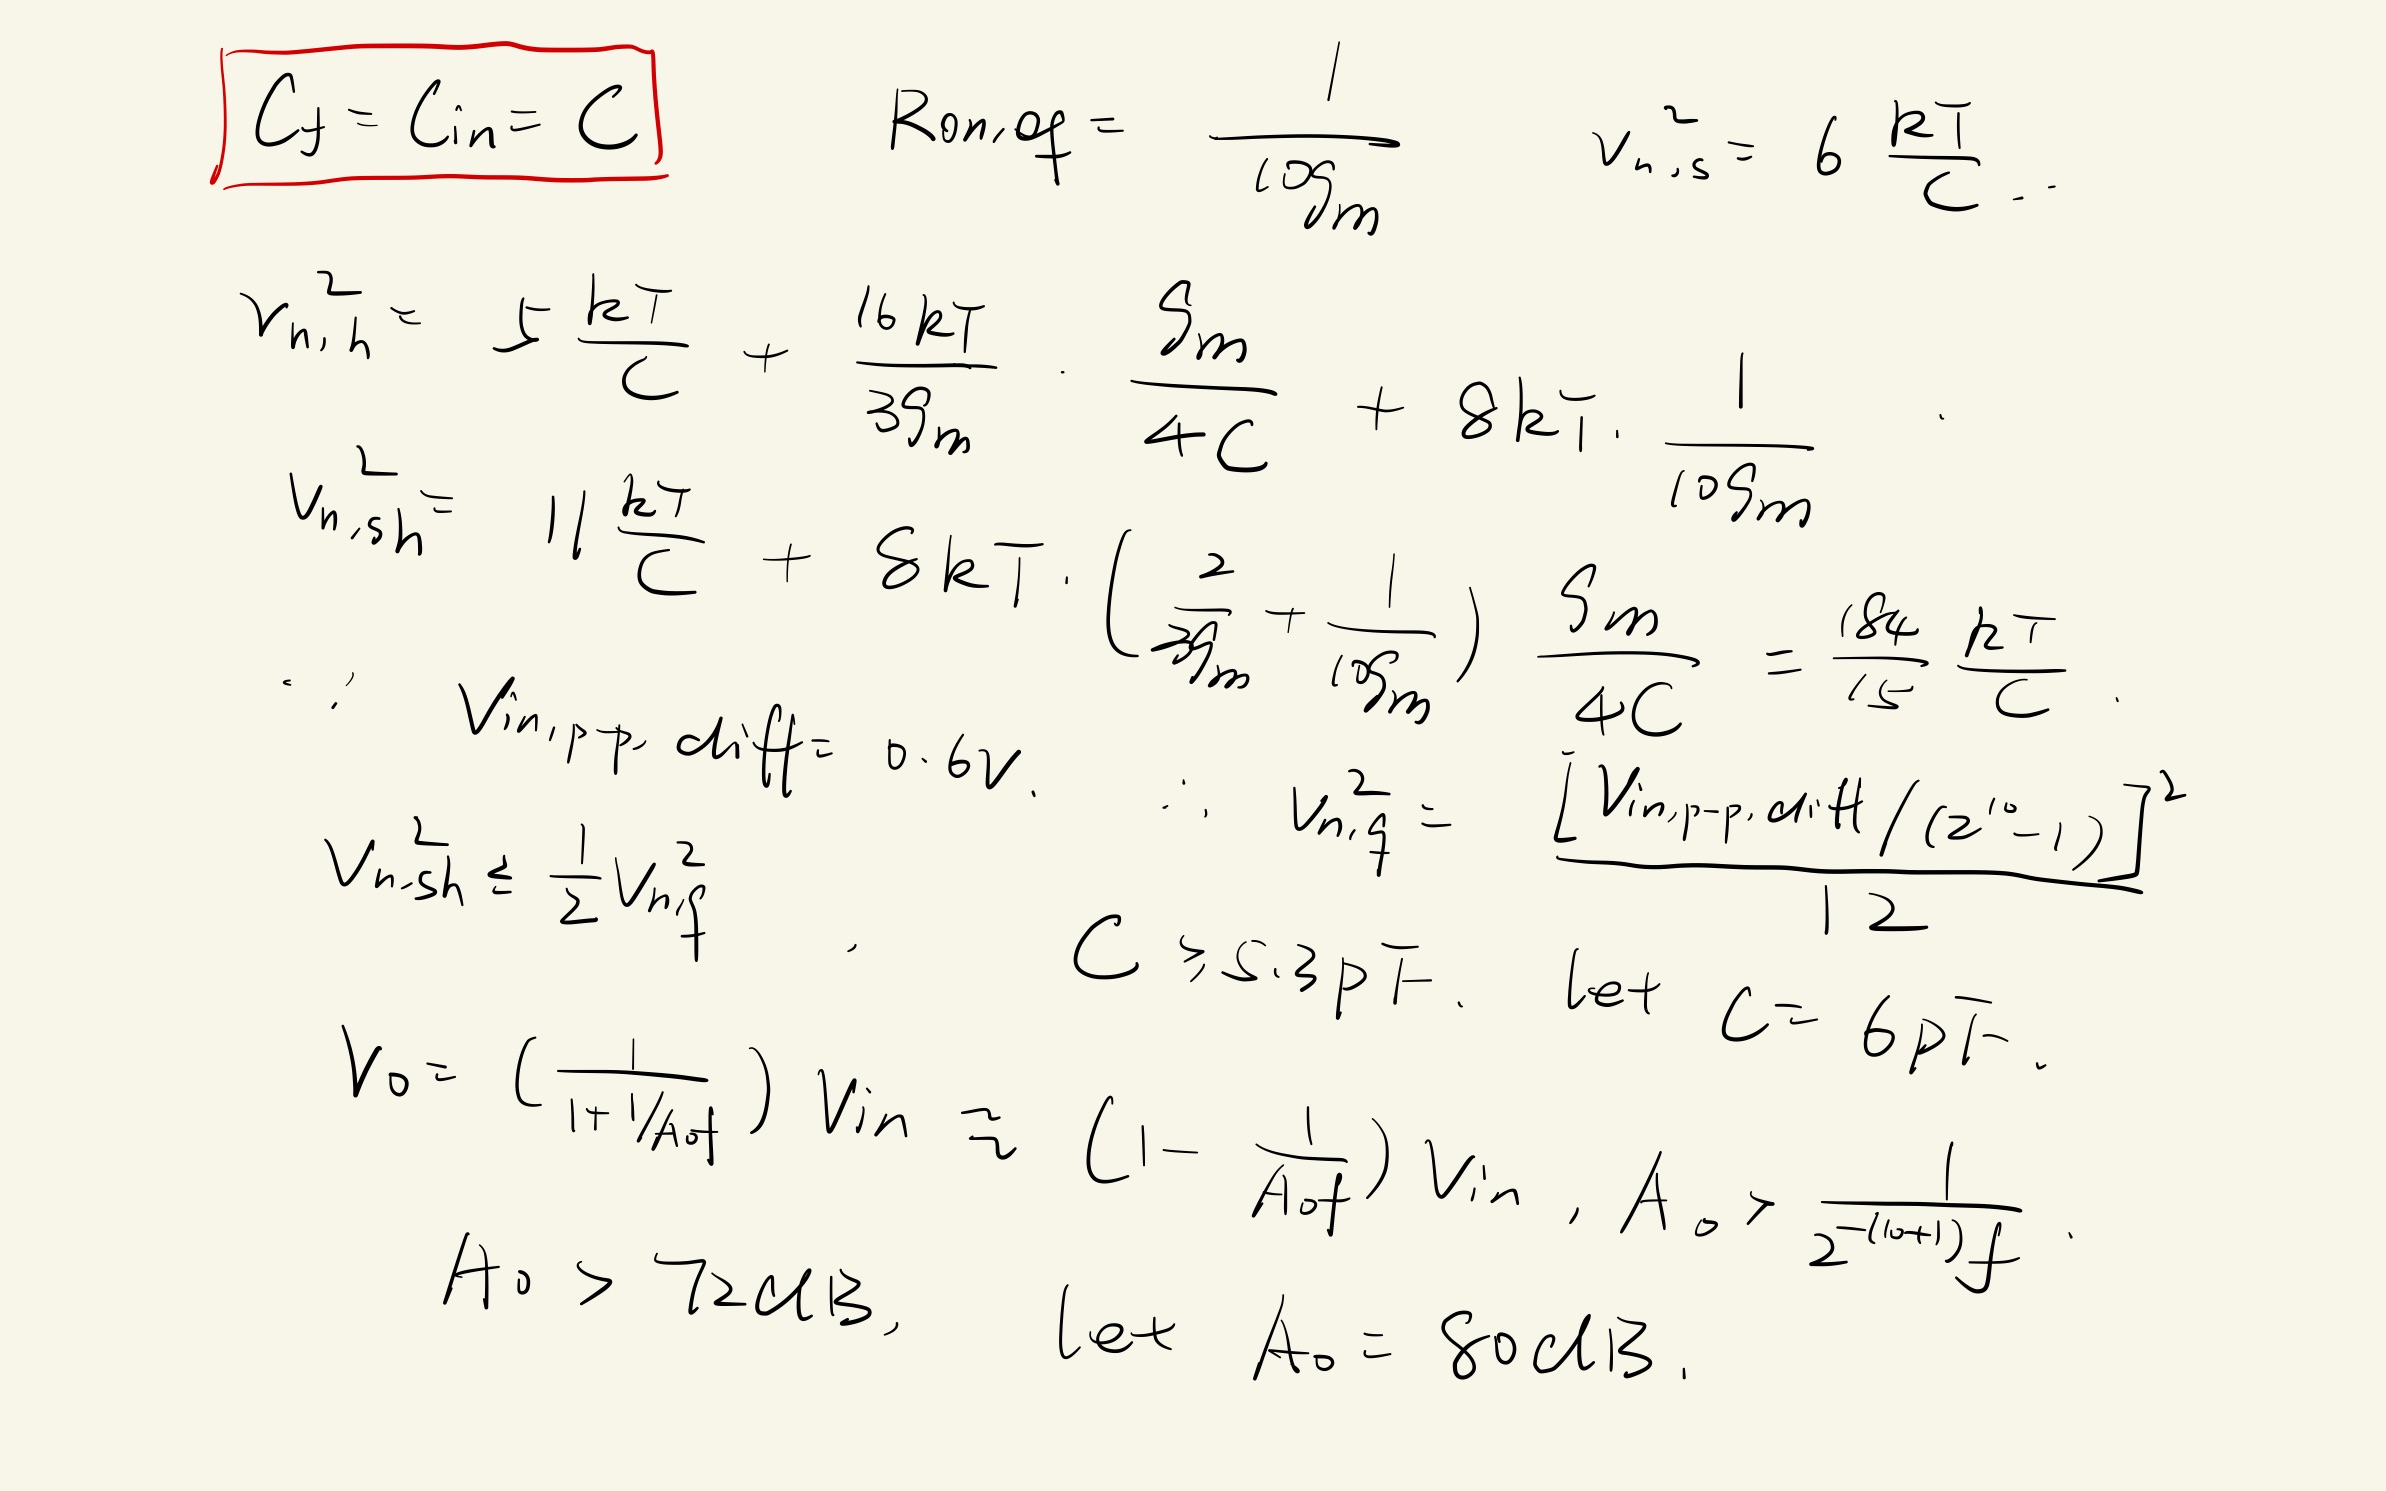 C_f = C_in = C    R_on,of = 1/(10g_m)    v_n,s² = 6 kT/C ..
v_n,h² = 5 kT/C + 16kT/(3g_m) · g_m/(4C) + 8kT · 1/(10g_m) .
v_n,sh² = 11 kT/C + 8kT · (2/(3g_m) + 1/(10g_m)) g_m/(4C) = 184/15 kT/C .
∵ V_in,p-p,diff = 0.6V. ∴ v_n,q² = [V_in,p-p,diff/(2¹⁰-1)]²/12
V_n,sh² ≤ 1/2 V_n,q² , C ≥ 5.3pF. let C = 6pF.
V_o = (1/(1+1/A_of)) V_in ≈ (1 - 1/(A_of)) V_in , A_o > 1/(2^(-(10+1)) f) .
A_o > 72dB, let A_o = 80dB.